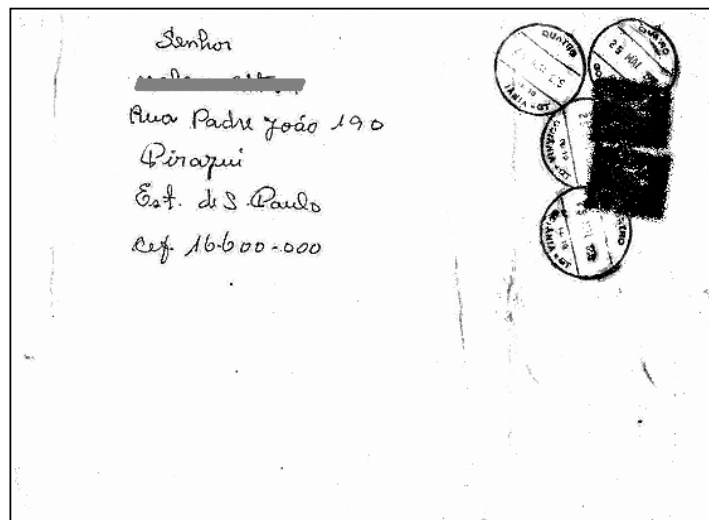 Senhor
Rua Padre João 190
Pirajui
Est. de S. Paulo
Cep. 16-600-000
QUATRO
25 MAI